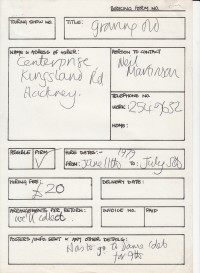 BOOKING FORM NO.
TOURING SHOW NO:
TITLE:
Growing old
NAME & ADDRESS OF HIRER:
Centerprise
Kingsland Rd
Hackney.
PERSON TO CONTACT
Neil
Martinson
TELEPHONE NO.
WORK: 254 9632
HOME:
POSSIBLE FIRM
HIRE DATES:- 1979
FROM: June 11th TO: July 5th
HIRING FEE:
£20
DELIVERY DATE:
ARRANGEMENTS FOR RETURN:
we'll collect.
INVOICE NO.
PAID
POSTERS/INFO SENT & ANY OTHER DETAILS:
Has to go to
for 9th